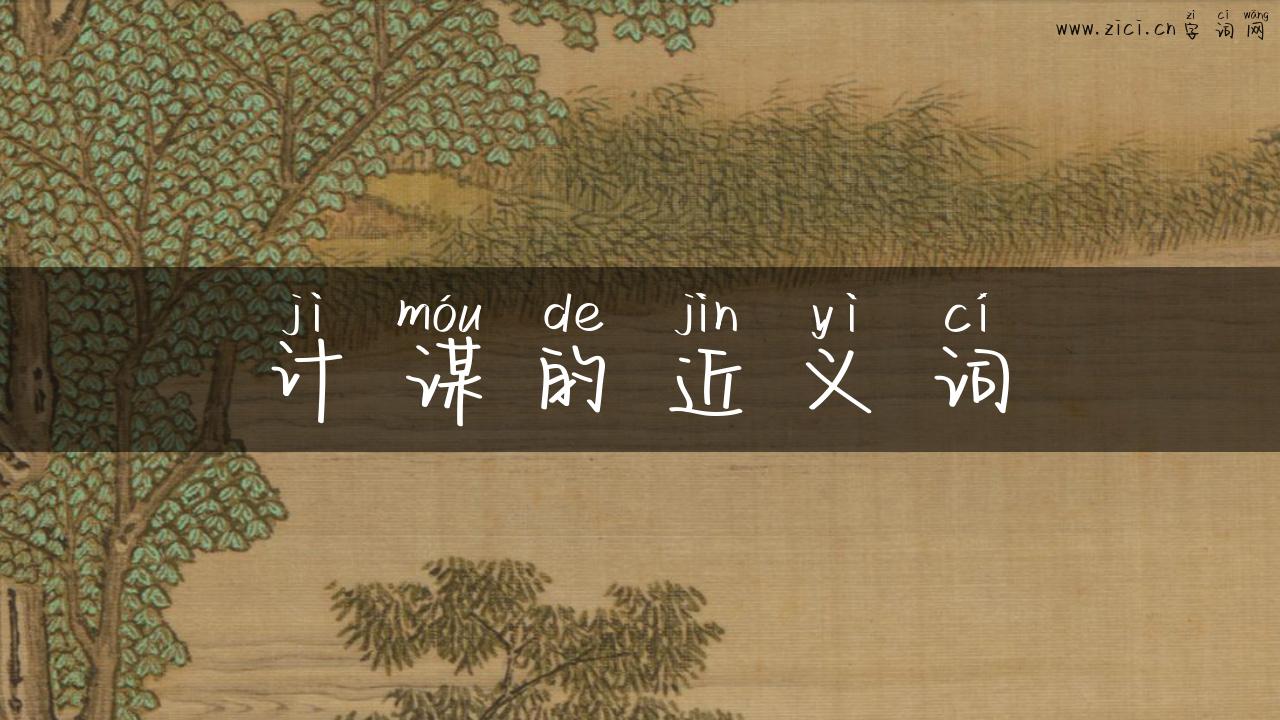 zì cí wǎng
www.zici.cn字词网
jì móu de jìn yì cí
计谋的近义词